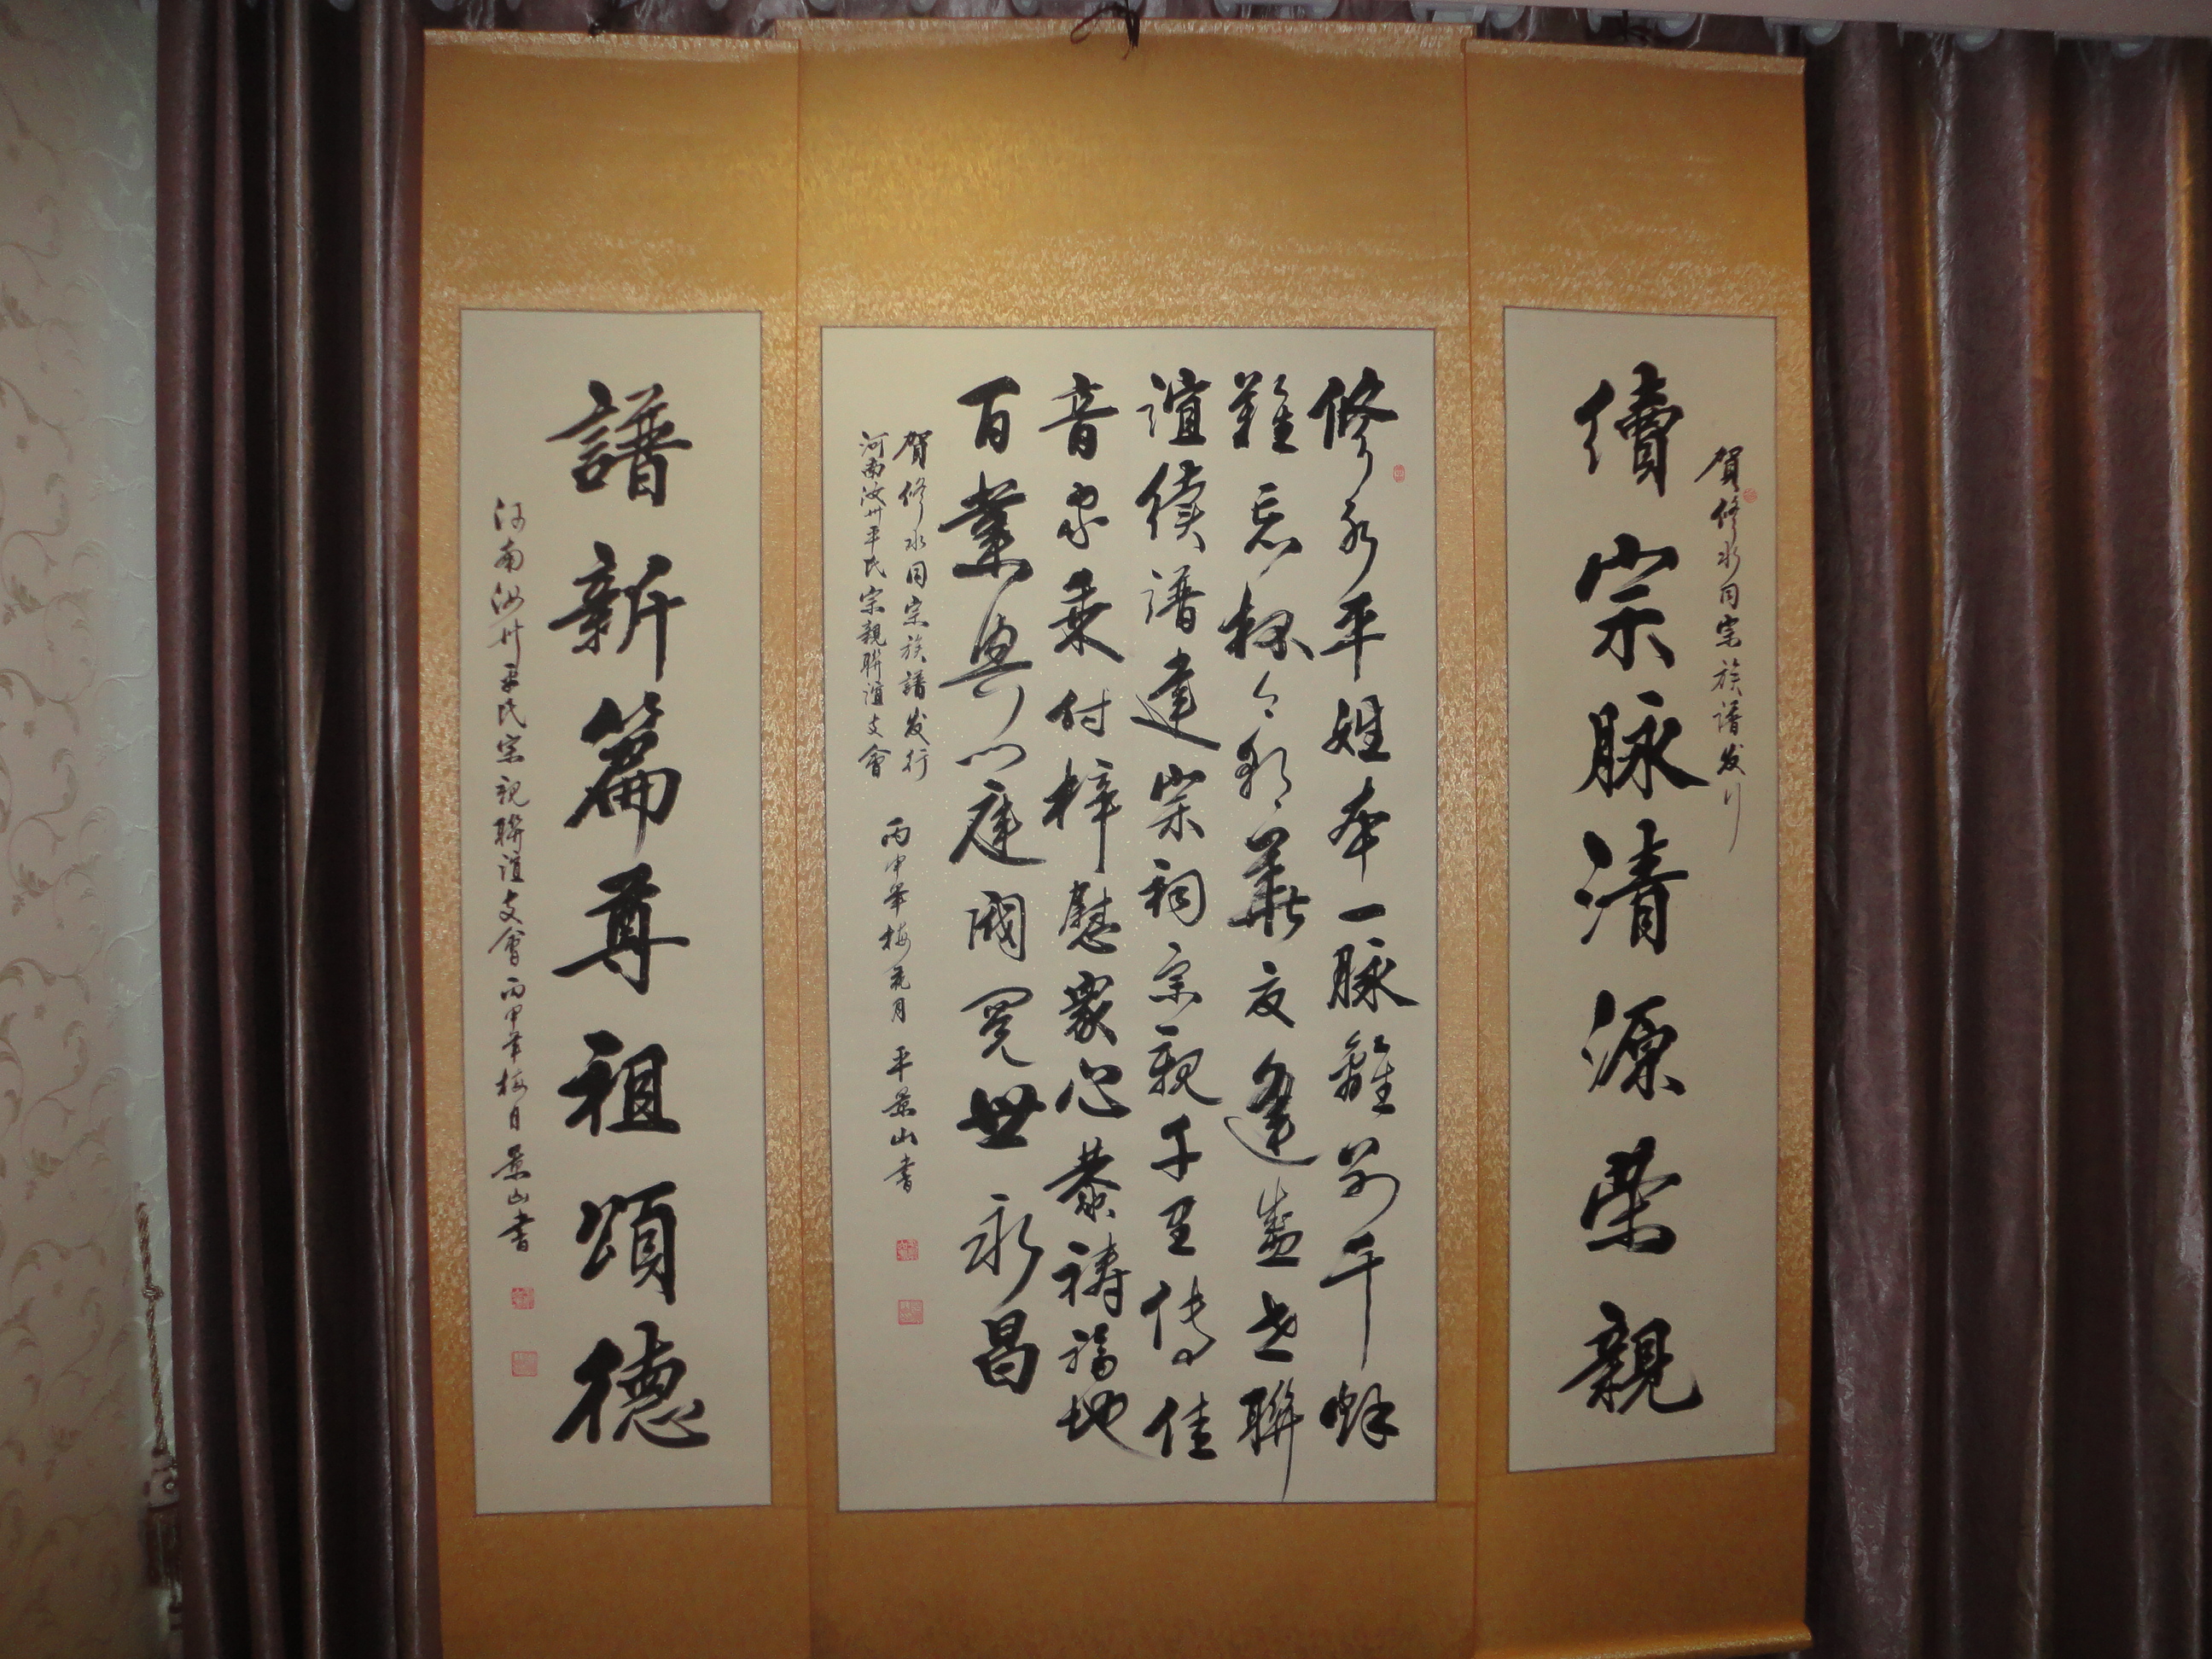 賀修水同宗族譜发行
續宗脉清源荣親
修水平姓本一脉離别千秋
難忘根今朝華夏逢盛世聯
誼續譜建宗祠宗親千里传佳
音家乘付梓慰衆心恭禱福地
百業興门庭閥閱世永昌
賀修水同宗族譜发行
河南汝州平氏宗親聯誼支會
丙申年梅月 平景山書
譜新篇尊祖頌德
河南汝州平氏宗親聯誼支會丙申年梅月景山書